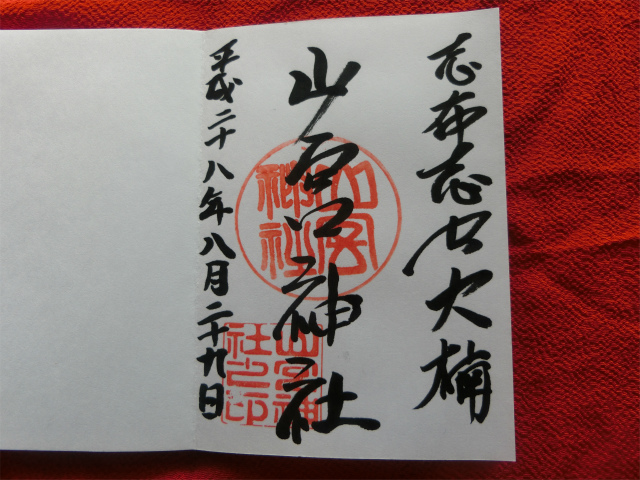 志布志の大楠
山宮神社
平成二十八年八月二十九日
山宮神社
山宮神社之印